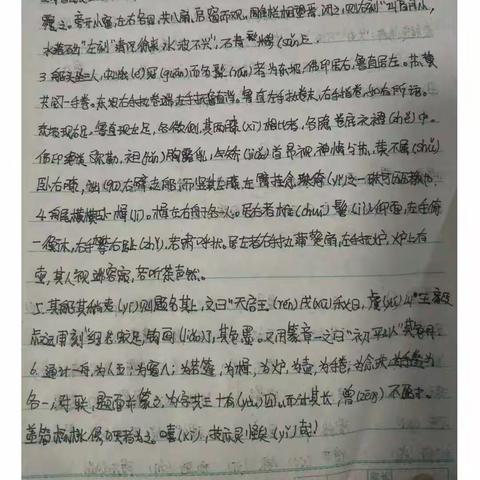 霭之。旁开小窗,左右各四,共八扇。启窗而观,雕栏相望焉。闭之,则右刻"山高月小,
水落石出"左刻"清风徐来,水波不兴",石青糁(sǎn)之。
3.船头坐三人,中峨(é)冠(guān)而多髯(rán)者为东坡,佛印居右,鲁直居左。苏、黄
共阅一手卷。东坡右手执卷端,左手抚鲁直背。鲁直左手执卷末,右手指卷,如有所语。
东坡现右足,鲁直现左足,各微侧,其两膝(xī)相比者,各隐卷底衣褶(zhě)中。
佛印绝类弥勒,袒(tǎn)胸露乳,矫首昂视,神情与苏、黄不属(shǔ)
卧右膝,诎(qū)右臂支船,而竖其左膝,左臂挂念珠倚(yǐ)之——珠可历历数也。
4.舟尾横卧一楫(jí)。楫左右舟子各一人。居右者椎(chuí)髻(jì)仰面,左手倚
一衡木,右手攀右趾(zhǐ),若啸呼状。居左者右手执蒲葵扇,左手抚炉,炉上有
壶,其人视端容寂,若听茶声然。
5.其船背稍夷(yí),则题名其上,文曰"天启壬(rén)戌(xū)秋日,虞(yú)山王毅
叔远甫刻"细若蚊足,钩画(liǎo)了,其色墨。又用篆章一文曰"初平山人"其色丹。
6.通计一舟,为人五;为窗八;为箬篷,为楫,为炉,为壶,为手卷,为念珠各一;
对联、题名并篆文,为字共三十有(yòu)四。而计其长,曾(zēng)不盈寸。
盖简桃核修狭者为之。嘻(xī),技亦灵怪矣(yǐ)哉!